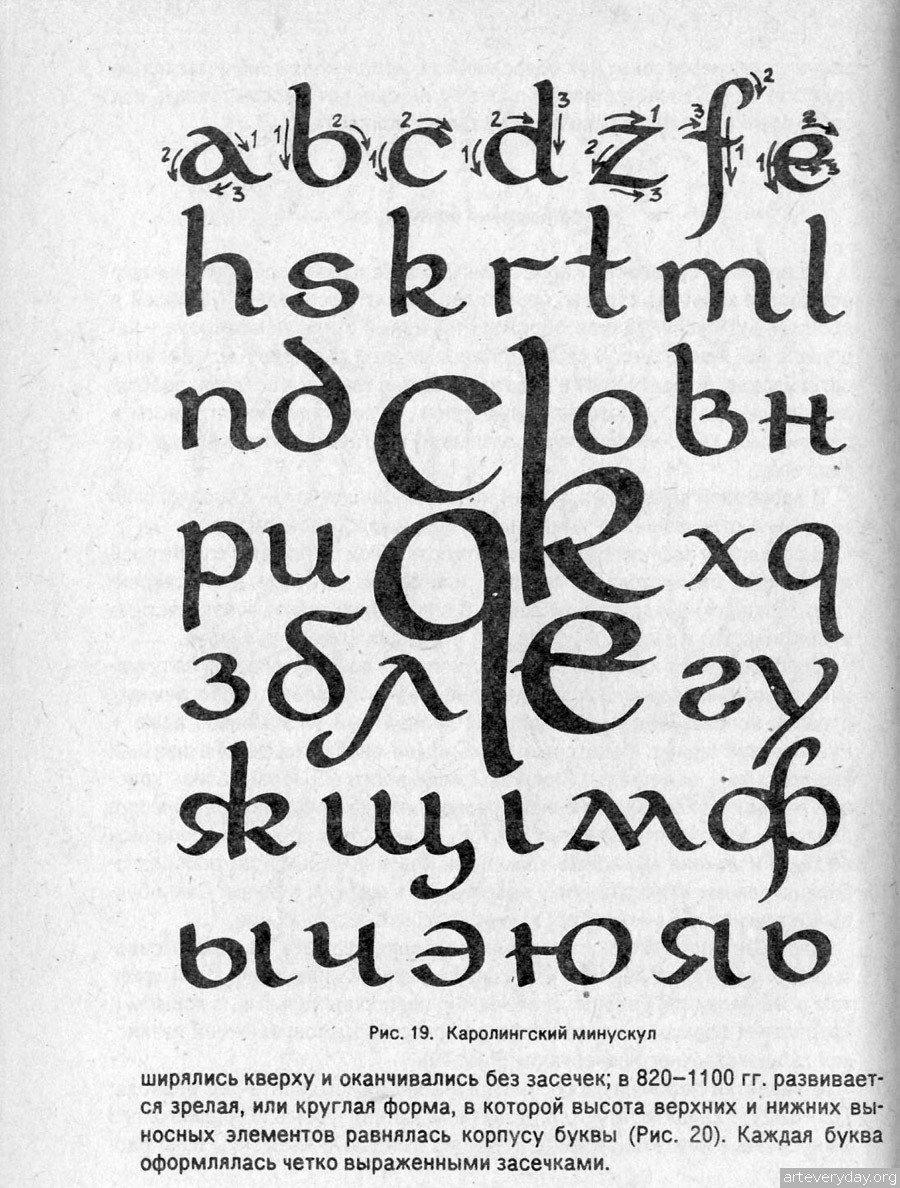 a b c d z f e
h s k r t m l
n д c l o в н
р и q k х q
з б л e г у
ж щ ı м ф
ы ч э ю я ь
Рис. 19. Каролингский минускул
ширялись кверху и оканчивались без засечек; в 820–1100 гг. развивает-
ся зрелая, или круглая форма, в которой высота верхних и нижних вы-
носных элементов равнялась корпусу буквы (Рис. 20). Каждая буква
оформлялась четко выраженными засечками.
arteveryday.org